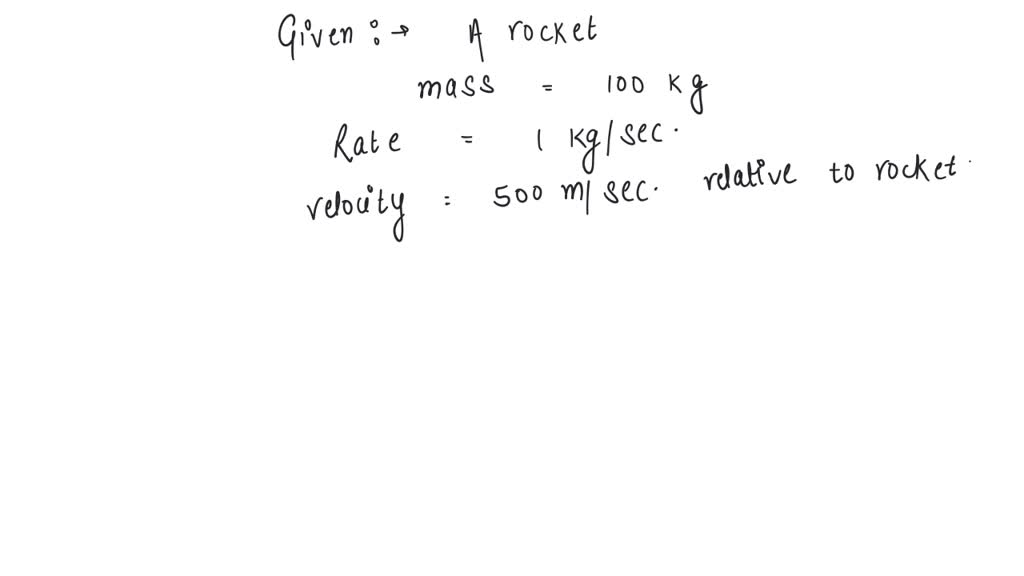 Given :→ A rocket
mass = 100 kg
Rate = 1 kg/sec.
velocity = 500 m/sec. relative to rocket.